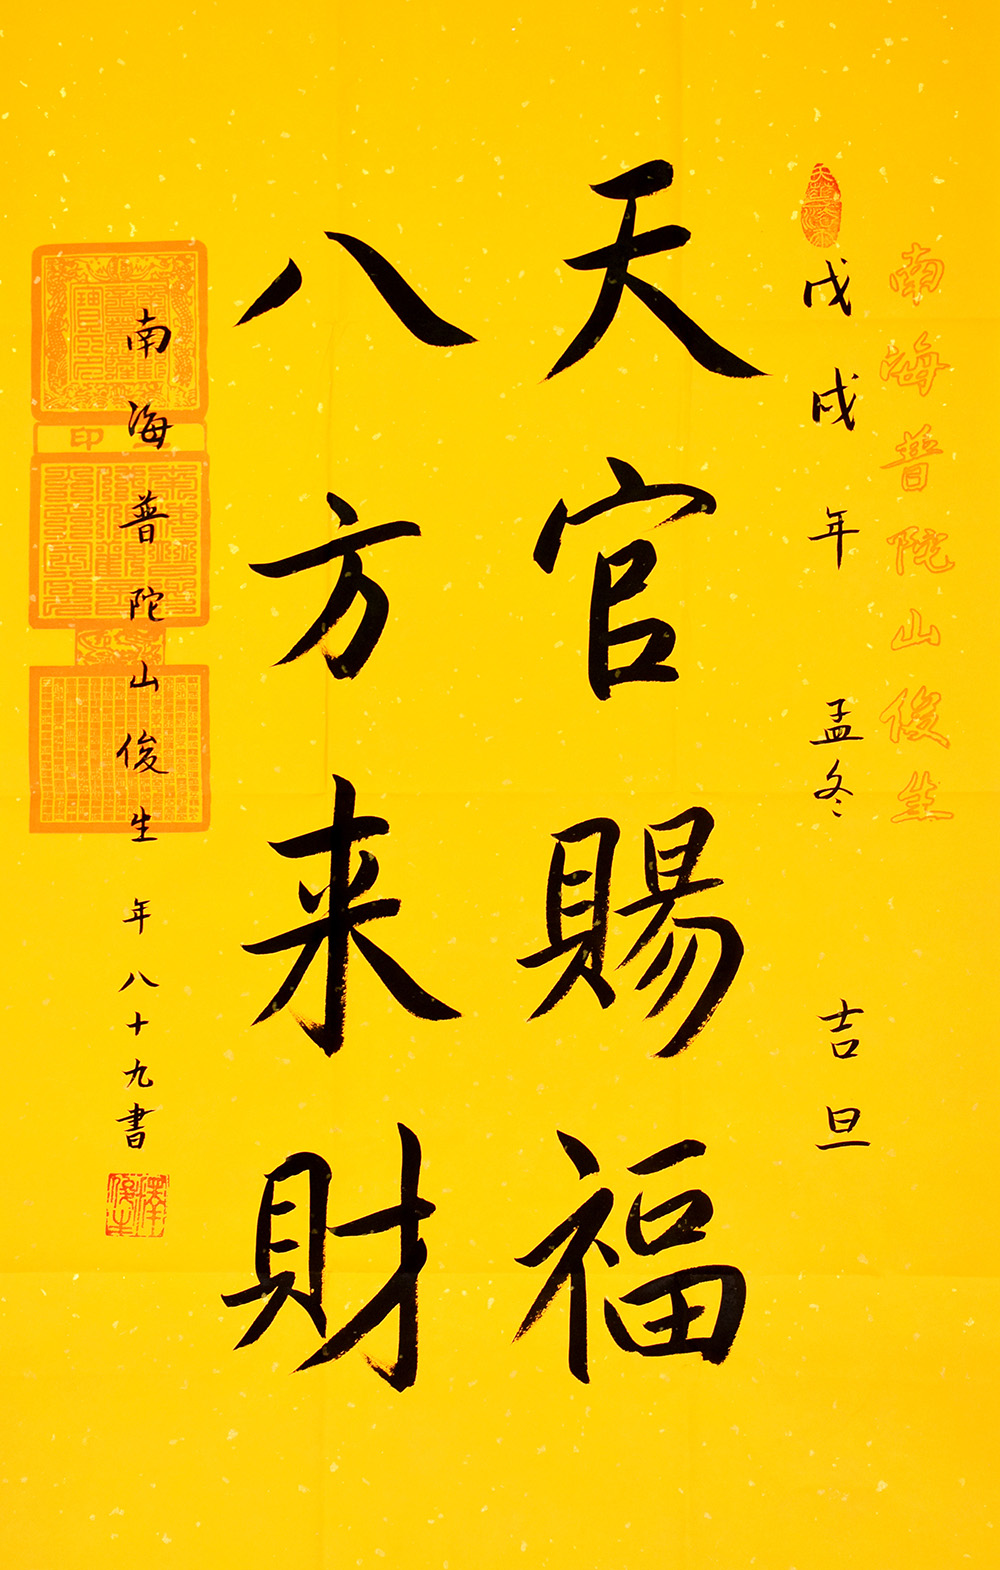 南海普陀山俊生
戊戌年 孟冬 吉旦
天官賜福
八方来財
南海普陀山俊生 年八十九書
印